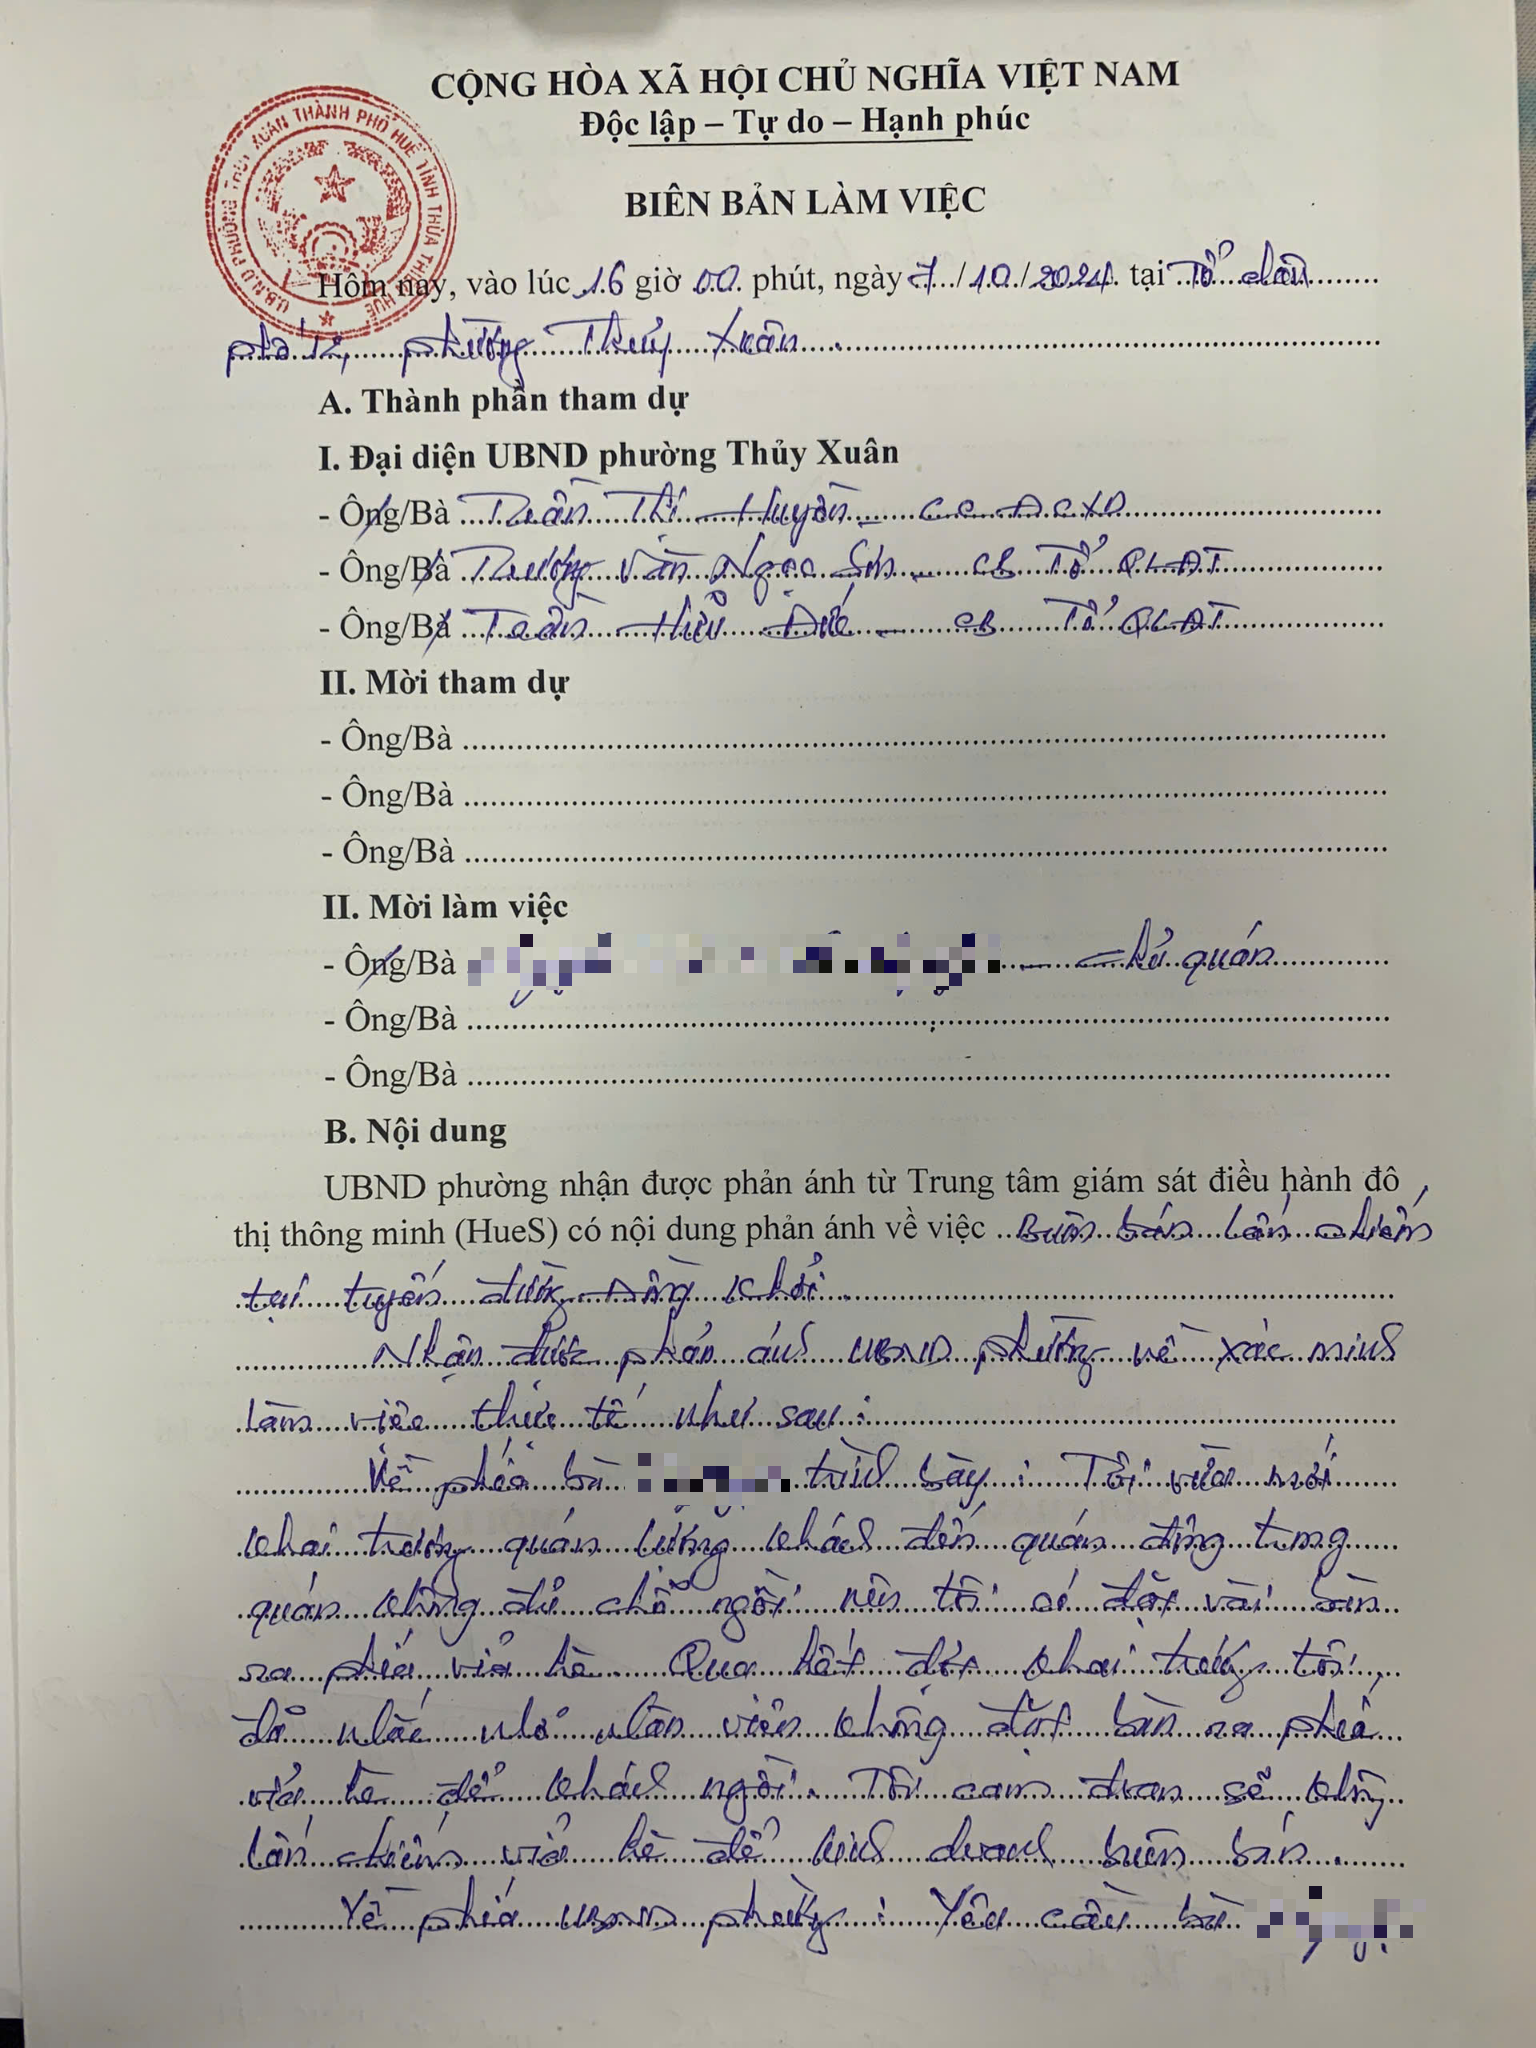 CỘNG HÒA XÃ HỘI CHỦ NGHĨA VIỆT NAM
Độc lập – Tự do – Hạnh phúc
U.B.N.D PHƯỜNG THỦY XUÂN THÀNH PHỐ HUẾ TỈNH THỪA THIÊN HUẾ
BIÊN BẢN LÀM VIỆC
Hôm nay, vào lúc 16 giờ 00 phút, ngày 7/10/2024 tại Tổ dân
phố 12, phường Thủy Xuân
A. Thành phần tham dự
I. Đại diện UBND phường Thủy Xuân
- Ông/Bà Trần Thị Huyền - CC ĐCXD
- Ông/Bà Trương Văn Ngọc Sơn - CB Tổ QLĐT
- Ông/Bà Trần Hữu Đức - CB Tổ QLĐT
II. Mời tham dự
- Ông/Bà
- Ông/Bà
- Ông/Bà
II. Mời làm việc
- Ông/Bà - Chủ quán
- Ông/Bà
- Ông/Bà
B. Nội dung
UBND phường nhận được phản ánh từ Trung tâm giám sát điều hành đô
thị thông minh (HueS) có nội dung phản ánh về việc Buôn bán lấn chiếm
tại tuyến đường Đồng Khởi.
Nhận được phản ánh UBND phường về xác minh
làm việc thực tế như sau:
Về phía bà trình bày: Tôi vừa mới
khai trương quán lượng khách đến quán đông trong
quán không đủ chỗ ngồi nên tôi có đặt vài bàn
ra phía vỉa hè. Qua hết đợt khai trương tôi
đã nhắc nhở nhân viên không đặt bàn ra phía
vỉa hè để khách ngồi. Tôi cam đoan sẽ không
lấn chiếm vỉa hè để kinh doanh buôn bán.
Về phía UBND phường: Yêu cầu bà